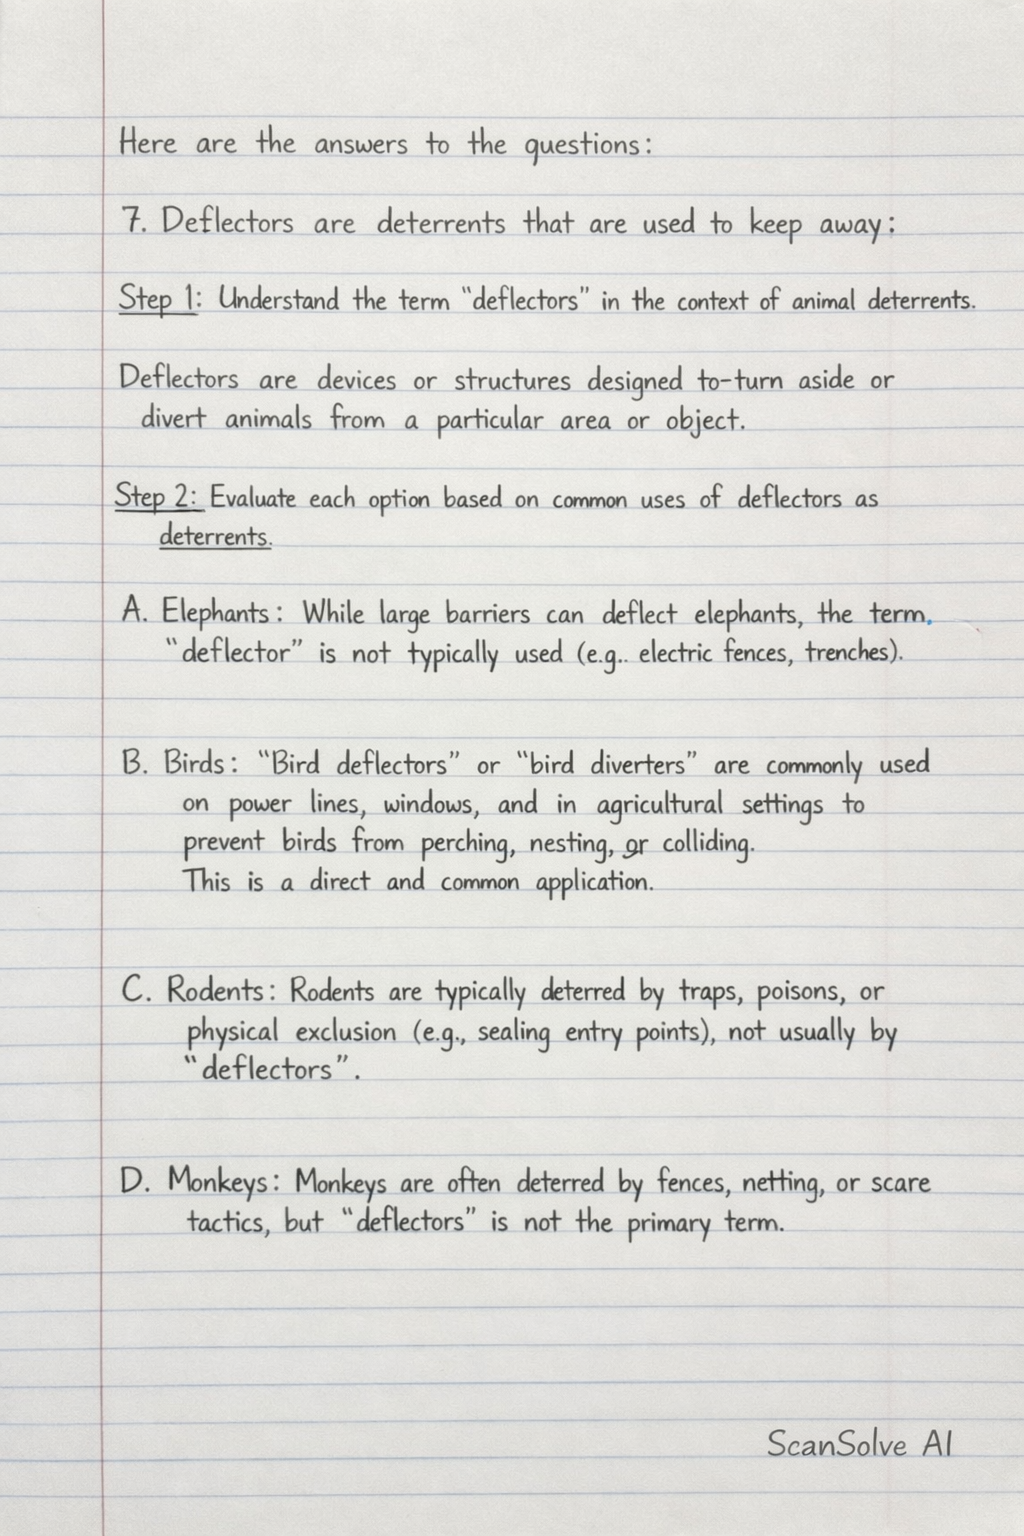 Here are the answers to the questions:
7. Deflectors are deterrents that are used to keep away:
Step 1: Understand the term "deflectors" in the context of animal deterrents.
Deflectors are devices or structures designed to-turn aside or
divert animals from a particular area or object.
Step 2: Evaluate each option based on common uses of deflectors as
deterrents.
A. Elephants: While large barriers can deflect elephants, the term.
"deflector" is not typically used (e.g.. electric fences, trenches).
B. Birds: "Bird deflectors" or "bird diverters" are commonly used
on power lines, windows, and in agricultural settings to
prevent birds from perching, nesting, or colliding.
This is a direct and common application.
C. Rodents: Rodents are typically deterred by traps, poisons, or
physical exclusion (e.g., sealing entry points), not usually by
"deflectors".
D. Monkeys: Monkeys are often deterred by fences, netting, or scare
tactics, but "deflectors" is not the primary term.
ScanSolve AI